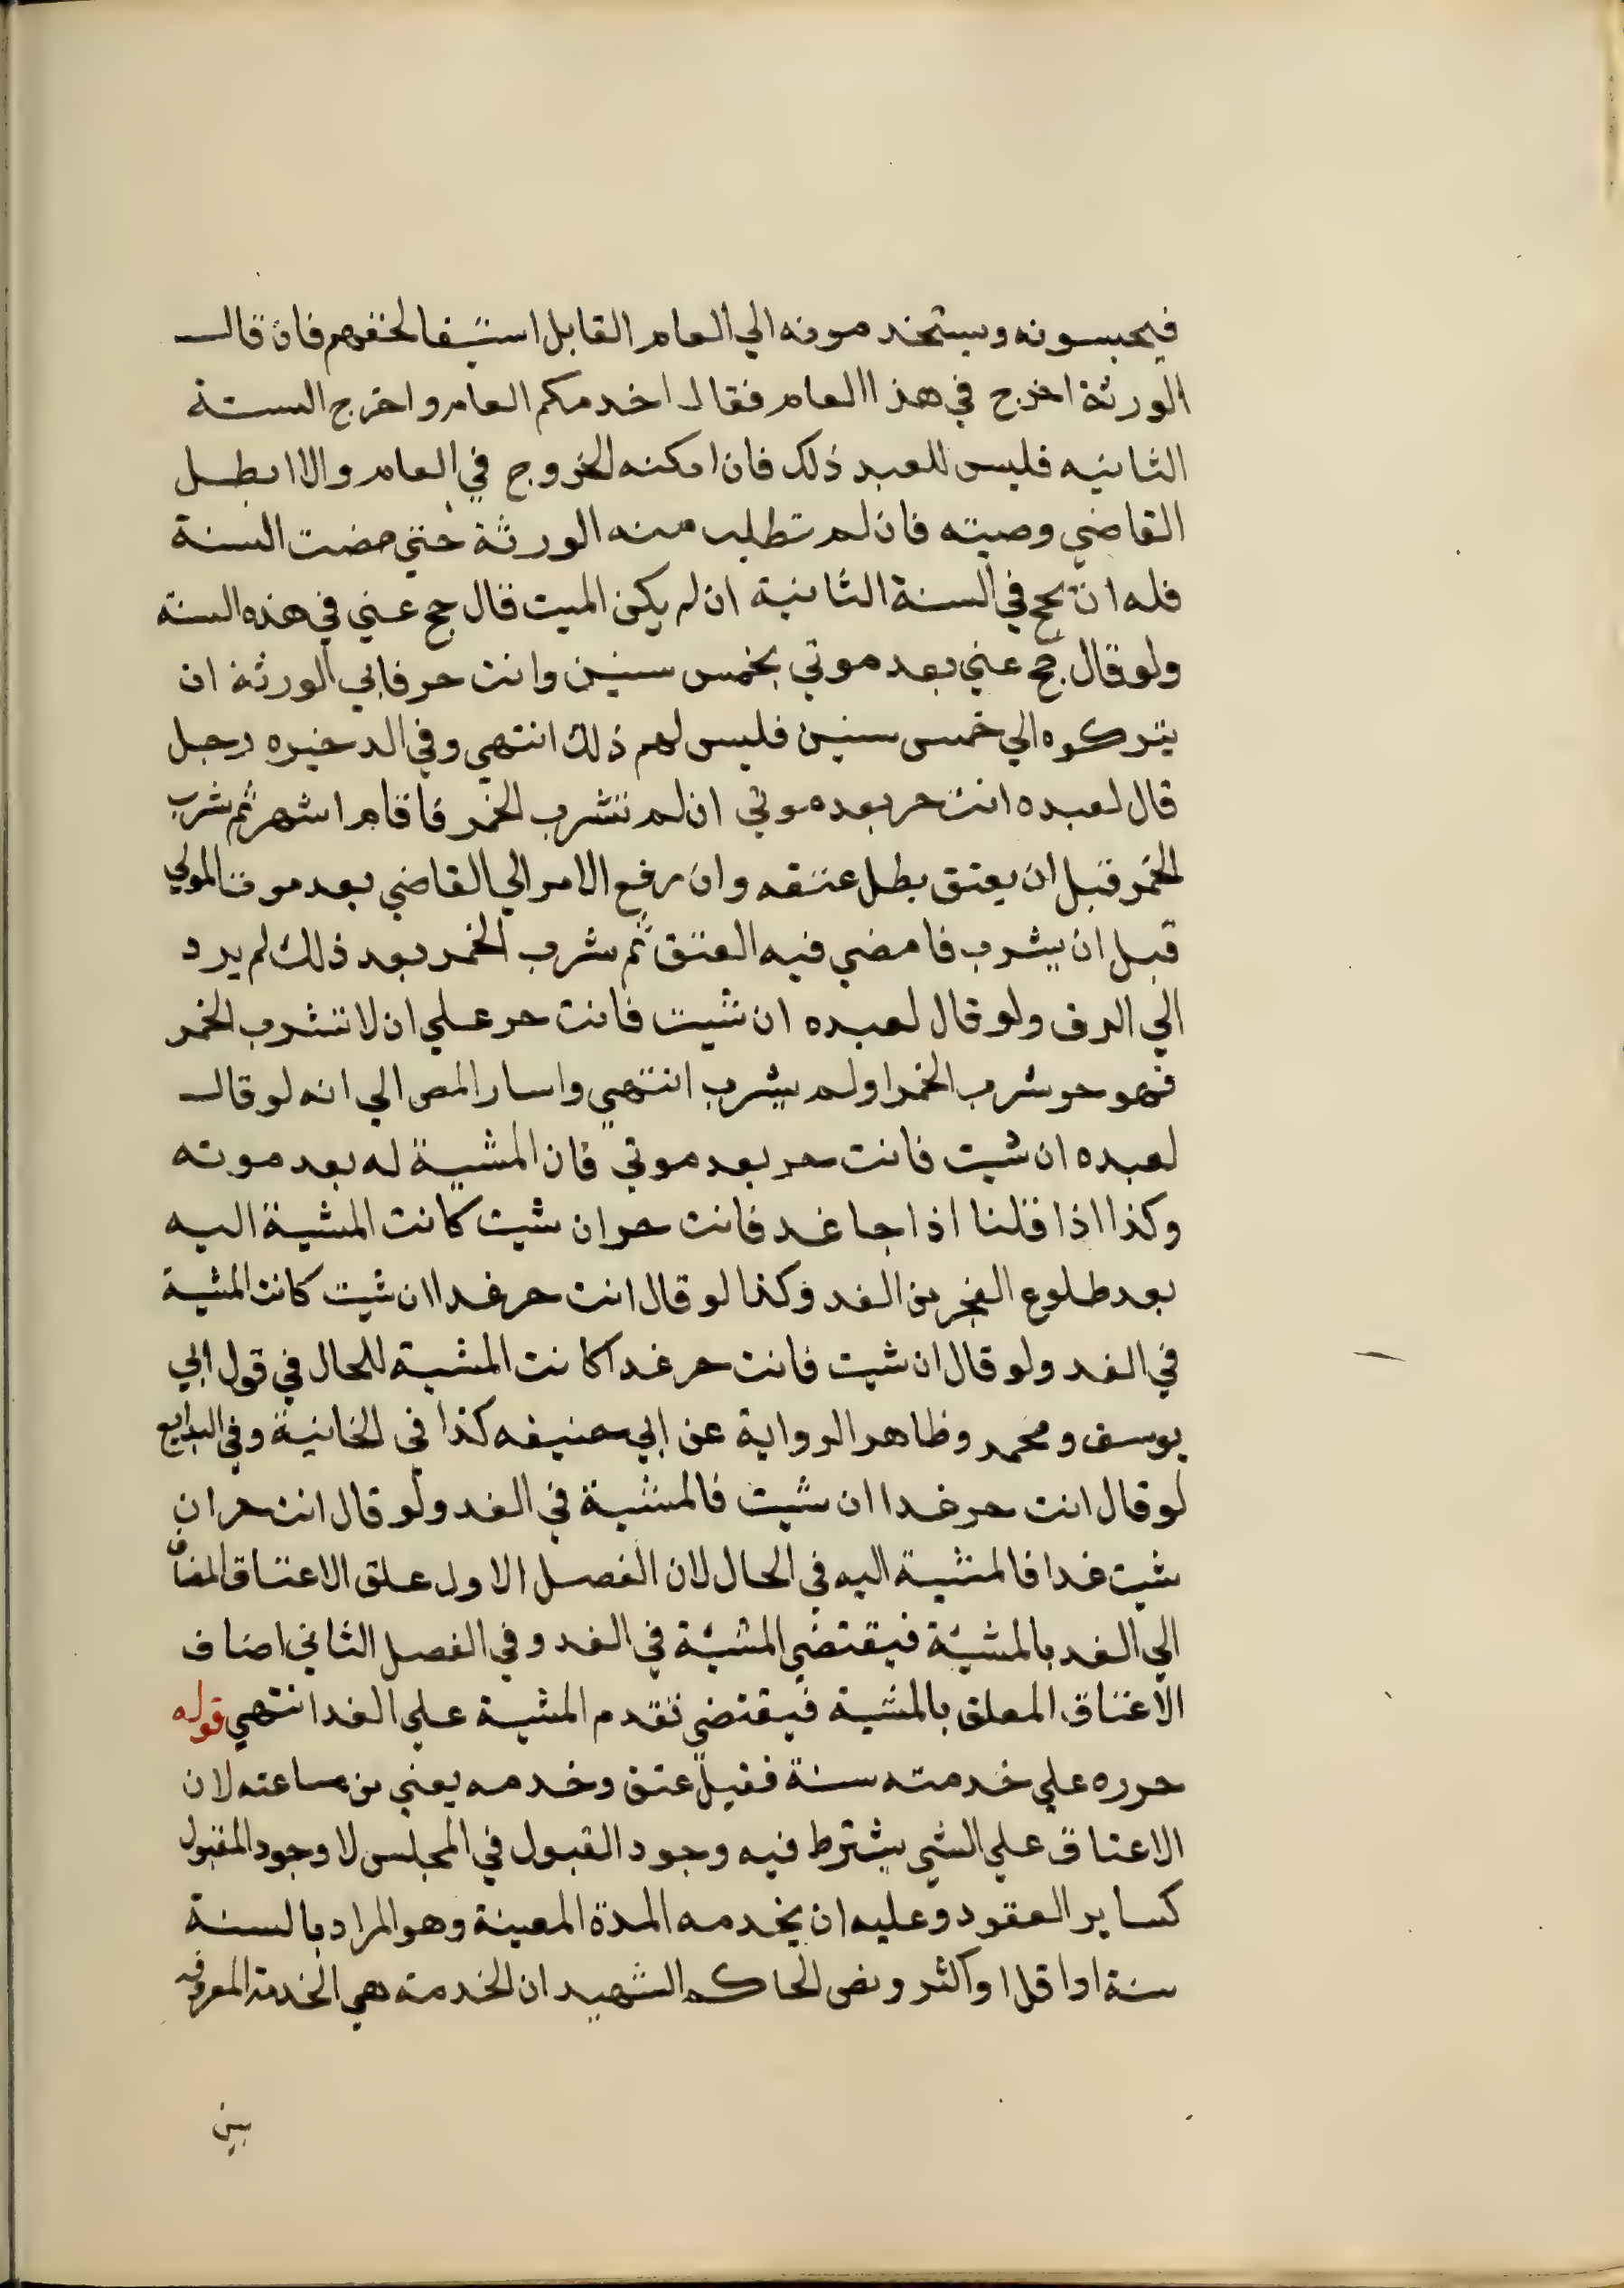 فيحبسونه ويستخدمونه الي العام القابل استيفا لحقهم فان قال
الورثة اخرج في هذا العام فقال اخدمكم العام واخرج السنة
الثانيه فليس للعبد ذلك فان امكنه الخروج في العام والا ابطل
القاضي وصيته فان لم تطلب منه الورثة حتي مضت السنة
فله ان يحج في السنة الثانية ان لم يكن الميت قال حج عني في هذه السنة
ولو قال حج عني بعد موتي بخمس سنين وانت حر فابي الورثة ان
يتركوه الي خمس سنين فليس لهم ذلك انتهي وفي الدخيره رجل
قال لعبده انت حر بعد موتي ان لم تشرب الخمر فاقام اشهر ثم شرب
الخمر قبل ان يعتق بطل عتقه وان رفع الامر الي القاضي بعد موت المولي
قبل ان يشرب فامضي فيه العتق ثم شرب الخمر بعد ذلك لم يرد
الي الرق ولو قال لعبده ان شيت فانت حر علي ان لا تشرب الخمر
فهو حر شرب الخمر اولم يشرب انتهي واسار المص الي انه لو قال
لعبده ان شيت فانت حر بعد موتي فان المشية له بعد موته
وكذا اذا قلنا اذا جا غد فانت حر ان شيت كانت المشية اليه
بعد طلوع الفجر من الغد وكذا لو قال انت حر غدا ان شيت كانت المشية
في الغد ولو قال ان شيت فانت حر غدا كانت المشية للحال في قول ابي
يوسف ومحمد وظاهر الرواية عن ابي حنيفه كذا في الخانية وفي البدايع
لو قال انت حر غدا ان شيت فالمشية في الغد ولو قال انت حر ان
شيت غدا فالمشية اليه في الحال لان الفصل الاول علق الاعتاق المضاف
الي الغد بالمشية فيقتضي المشية في الغد وفي الفصل الثاني اضاف
الاعتاق المعلق بالمشية فيقتضي تقدم المشية علي الغد انتهي قوله
حرره علي خدمته سنة فقبل عتق وخدمه يعني من ساعته لان
الاعتاق علي الشي يشترط فيه وجود القبول في المجلس لا وجود المقبول
كساير العقود وعليه ان يخدمه المدة المعينة وهو المراد بالسنة
سنة او اقل او اكثر ونص الحاكم الشهيد ان الخدمة هي الخدمة المعروفه
بين